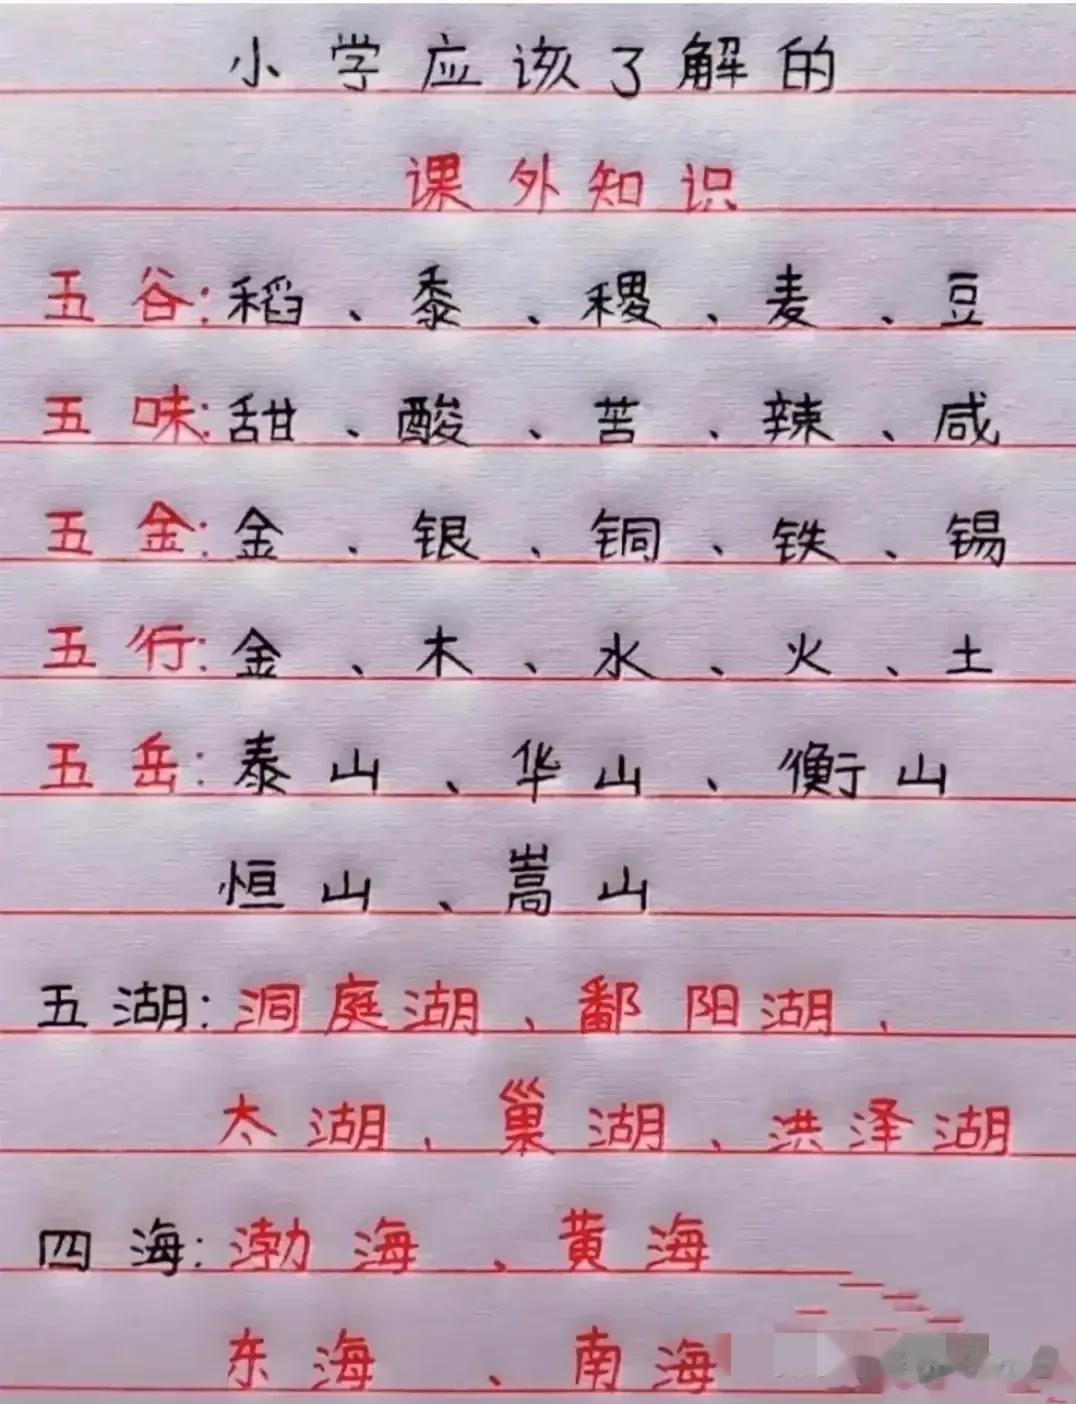 小学应该了解的
课外知识
五谷:稻、黍、稷、麦、豆
五味:甜、酸、苦、辣、咸
五金:金、银、铜、铁、锡
五行:金、木、水、火、土
五岳:泰山、华山、衡山
恒山、嵩山
五湖:洞庭湖、鄱阳湖、
太湖、巢湖、洪泽湖
四海:渤海、黄海
东海、南海